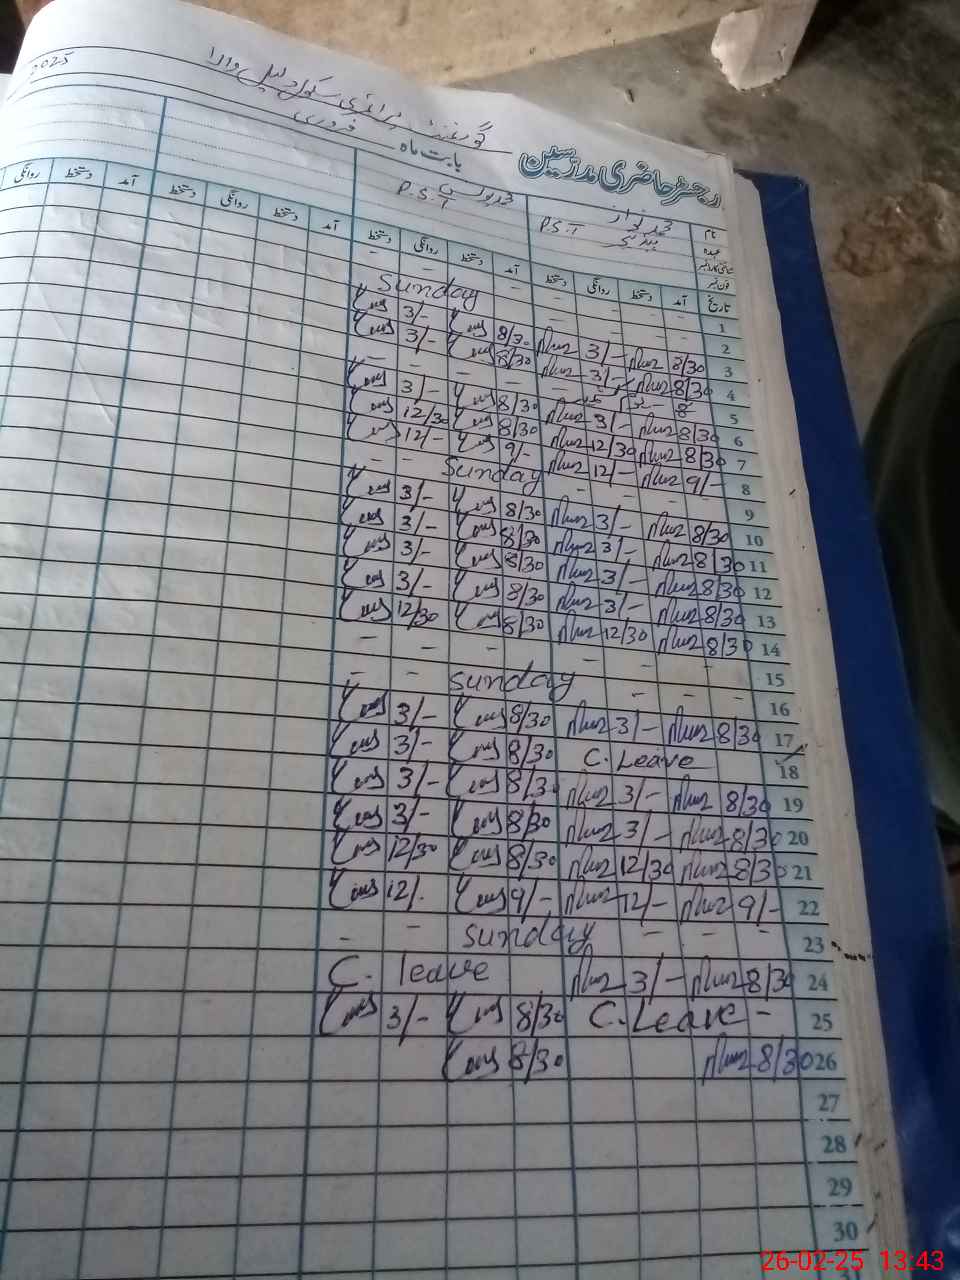 گورنمنٹ پرائمری سکول دلیل والا
2025
رجسٹر حاضری مدرسین بابت ماہ فروری
نام محمد نواز محمد یوسف
عہدہ P.S.T P.S.T
فون نمبر
تاریخ آمد دستخط روانگی دستخط آمد دستخط روانگی دستخط آمد دستخط روانگی دستخط دستخط روانگی
1 - - - - - - -
2 - - - - Sunday
3 8/30 3/- 8/30 3/-
4 8/30 3/- 8/30 3/-
5 - - - -
6 8/30 3/- 8/30 3/-
7 8/30 12/30 8/30 12/30
8 9/- 12/- 9/- 12/-
9 - - - - Sunday - -
10 8/30 3/- 8/30 3/-
11 8/30 3/- 8/30 3/-
12 8/30 3/- 8/30 3/-
13 8/30 3/- 8/30 3/-
14 8/30 12/30 8/30 12/30
15 - - - - - - -
16 - - - Sunday - -
17 8/30 3/- 8/30 3/-
18 C. Leave 8/30 3/-
19 8/30 3/- 8/30 3/-
20 8/30 3/- 8/30 3/-
21 8/30 12/30 8/30 12/30
22 9/- 12/- 9/- 12/.
23 - - - Sunday - -
24 8/30 3/- C. leave
25 C. Leave - 8/30 3/-
26 8/30 8/30
27
28
29
30
26-02-25 13:43